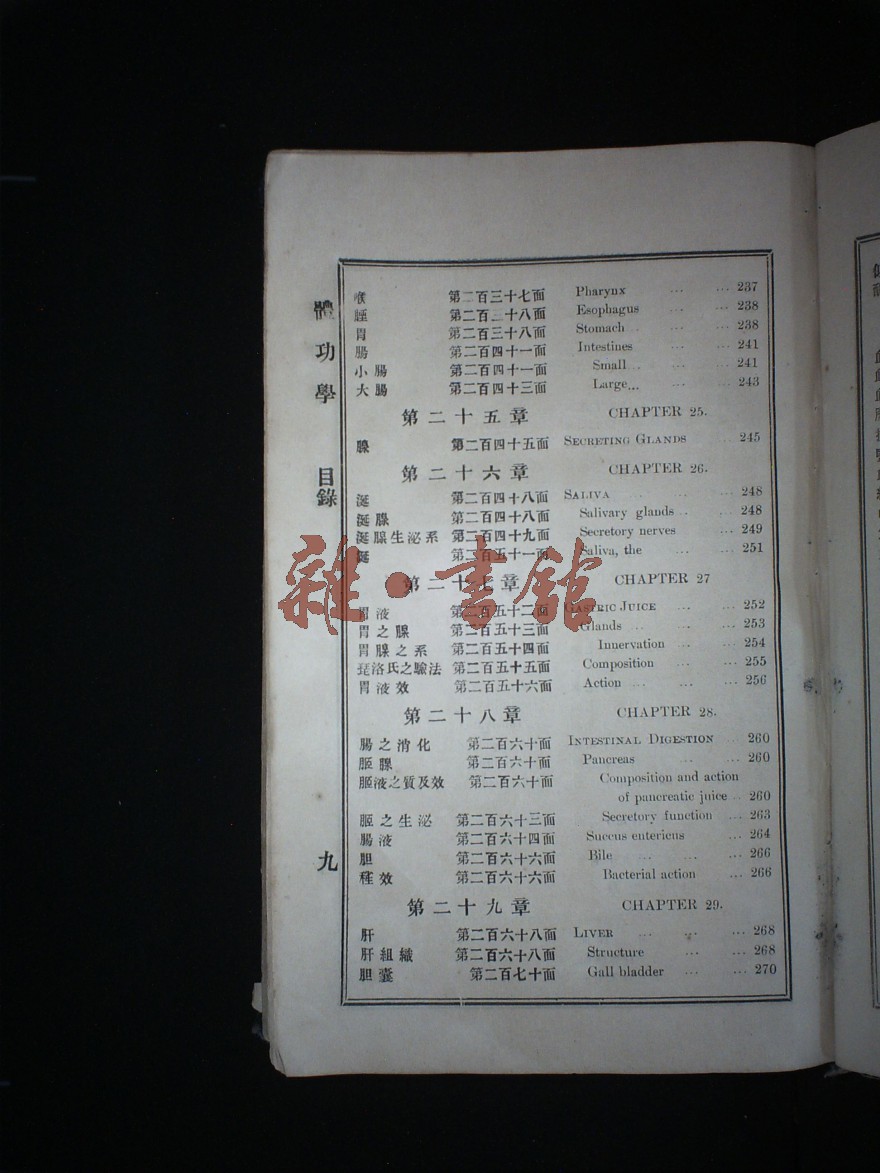 體功學 目錄 九
喉 第二百三十七面 Pharynx ... ... 237
第二百三十八面 Esophagus ... ... 238
胃 第二百三十八面 Stomach ... ... 238
腸 第二百四十一面 Intestines ... ... 241
小腸 第二百四十一面 Small ... ... 241
大腸 第二百四十三面 Large... ... 243
第二十五章 CHAPTER 25.
腺 第二百四十五面 SECRETING GLANDS ... 245
第二十六章 CHAPTER 26.
涎 第二百四十八面 SALIVA ... 248
涎腺 第二百四十八面 Salivary glands ... 248
涎腺生泌系 第二百四十九面 Secretory nerves ... 249
涎 第二百五十一面 Saliva, the ... ... 251
第二十七章 CHAPTER 27
胃液 第二百五十二面 GASTRIC JUICE ... ... 252
胃之腺 第二百五十三面 Glands ... ... 253
胃腺之系 第二百五十四面 Innervation ... ... 254
洛氏之驗法 第二百五十五面 Composition ... ... 255
胃液效 第二百五十六面 Action ... ... ... 256
第二十八章 CHAPTER 28.
腸之消化 第二百六十面 INTESTINAL DIGESTION 260
腺 第二百六十面 Pancreas ... ... 260
液之質及效 第二百六十面 Composition and action
of pancreatic juice 260
之生泌 第二百六十三面 Secretory function ... 263
腸液 第二百六十四面 Succus entericus ... 264
胆 第二百六十六面 Bile ... ... ... 266
效 第二百六十六面 Bacterial action ... 266
第二十九章 CHAPTER 29.
肝 第二百六十八面 LIVER ... ... ... 268
肝組織 第二百六十八面 Structure ... ... 268
胆囊 第二百七十面 Gall bladder ... ... 270
雜·書館